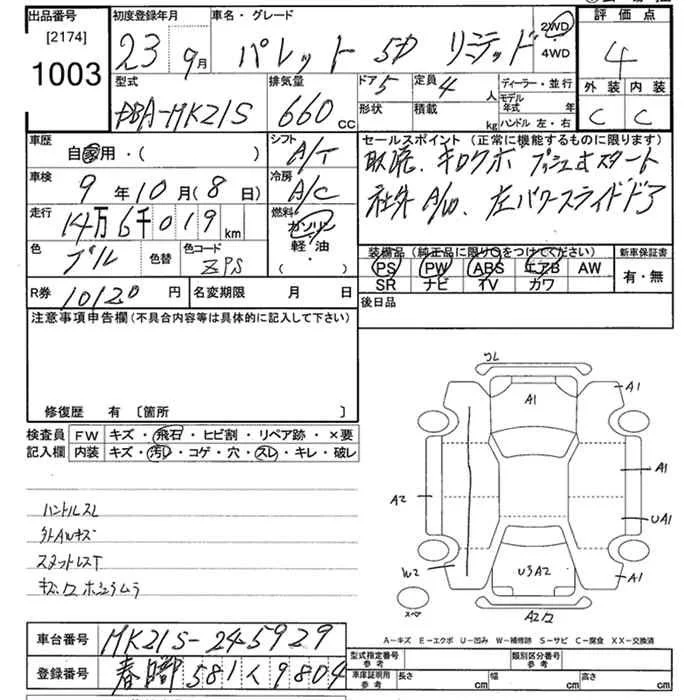 出品番号
[2174]
1003
初度登録年月
23年 9月
車名・グレード
パレット 5D リミテッド
2WD
4WD
評価点
4
外装 内装
C C
型式
DBA-MK21S
排気量
660 cc
ドア 5
定員 4 人
形状
積載 kg
ディーラー・並行
モデル年式 年
ハンドル 左・右
車歴
自家用・( )
シフト
A/T
車検
9年10月(8日)
冷房
A/C
走行
14万6千019 km
燃料
ガソリン
軽・油
・( )
色
ブル
色替
色コード
ZPS
R券 10120 円
名変期限 月 日
セールスポイント (正常に機能するものに限ります)
取説、キロクボ プッシュ式スタート
社外A/W、左パワースライドドア
装備品(純正品に限り○をつけてください)
PS PW ABS エアB AW
SR ナビ TV カワ
新車保証書
有・無
後日品
注意事項申告欄(不具合内容等は具体的に記入して下さい)
修復歴 有 〔箇所 〕
検査員
記入欄
FW キズ・飛石・ヒビ割・リペア跡・×要
内装 キズ・汚れ・コゲ・穴・スレ・キレ・破レ
ハンドルスレ
外AWキズ
スマットレスT
キズ、ワ ホシュウムラ
UL
A1
A1
A2
A1
UA1
W2
USA2
A1
スペア
A2ワ
A-キズ E-エクボ U-凹み W-補修跡 S-サビ C-腐食 XX-交換済
車台番号 MK21S-245929
登録番号 春日部 581 く 9804
型式指定番号
参考
類別区分番号
参考
車庫証明用
参考
長さ cm
幅 cm
高さ cm